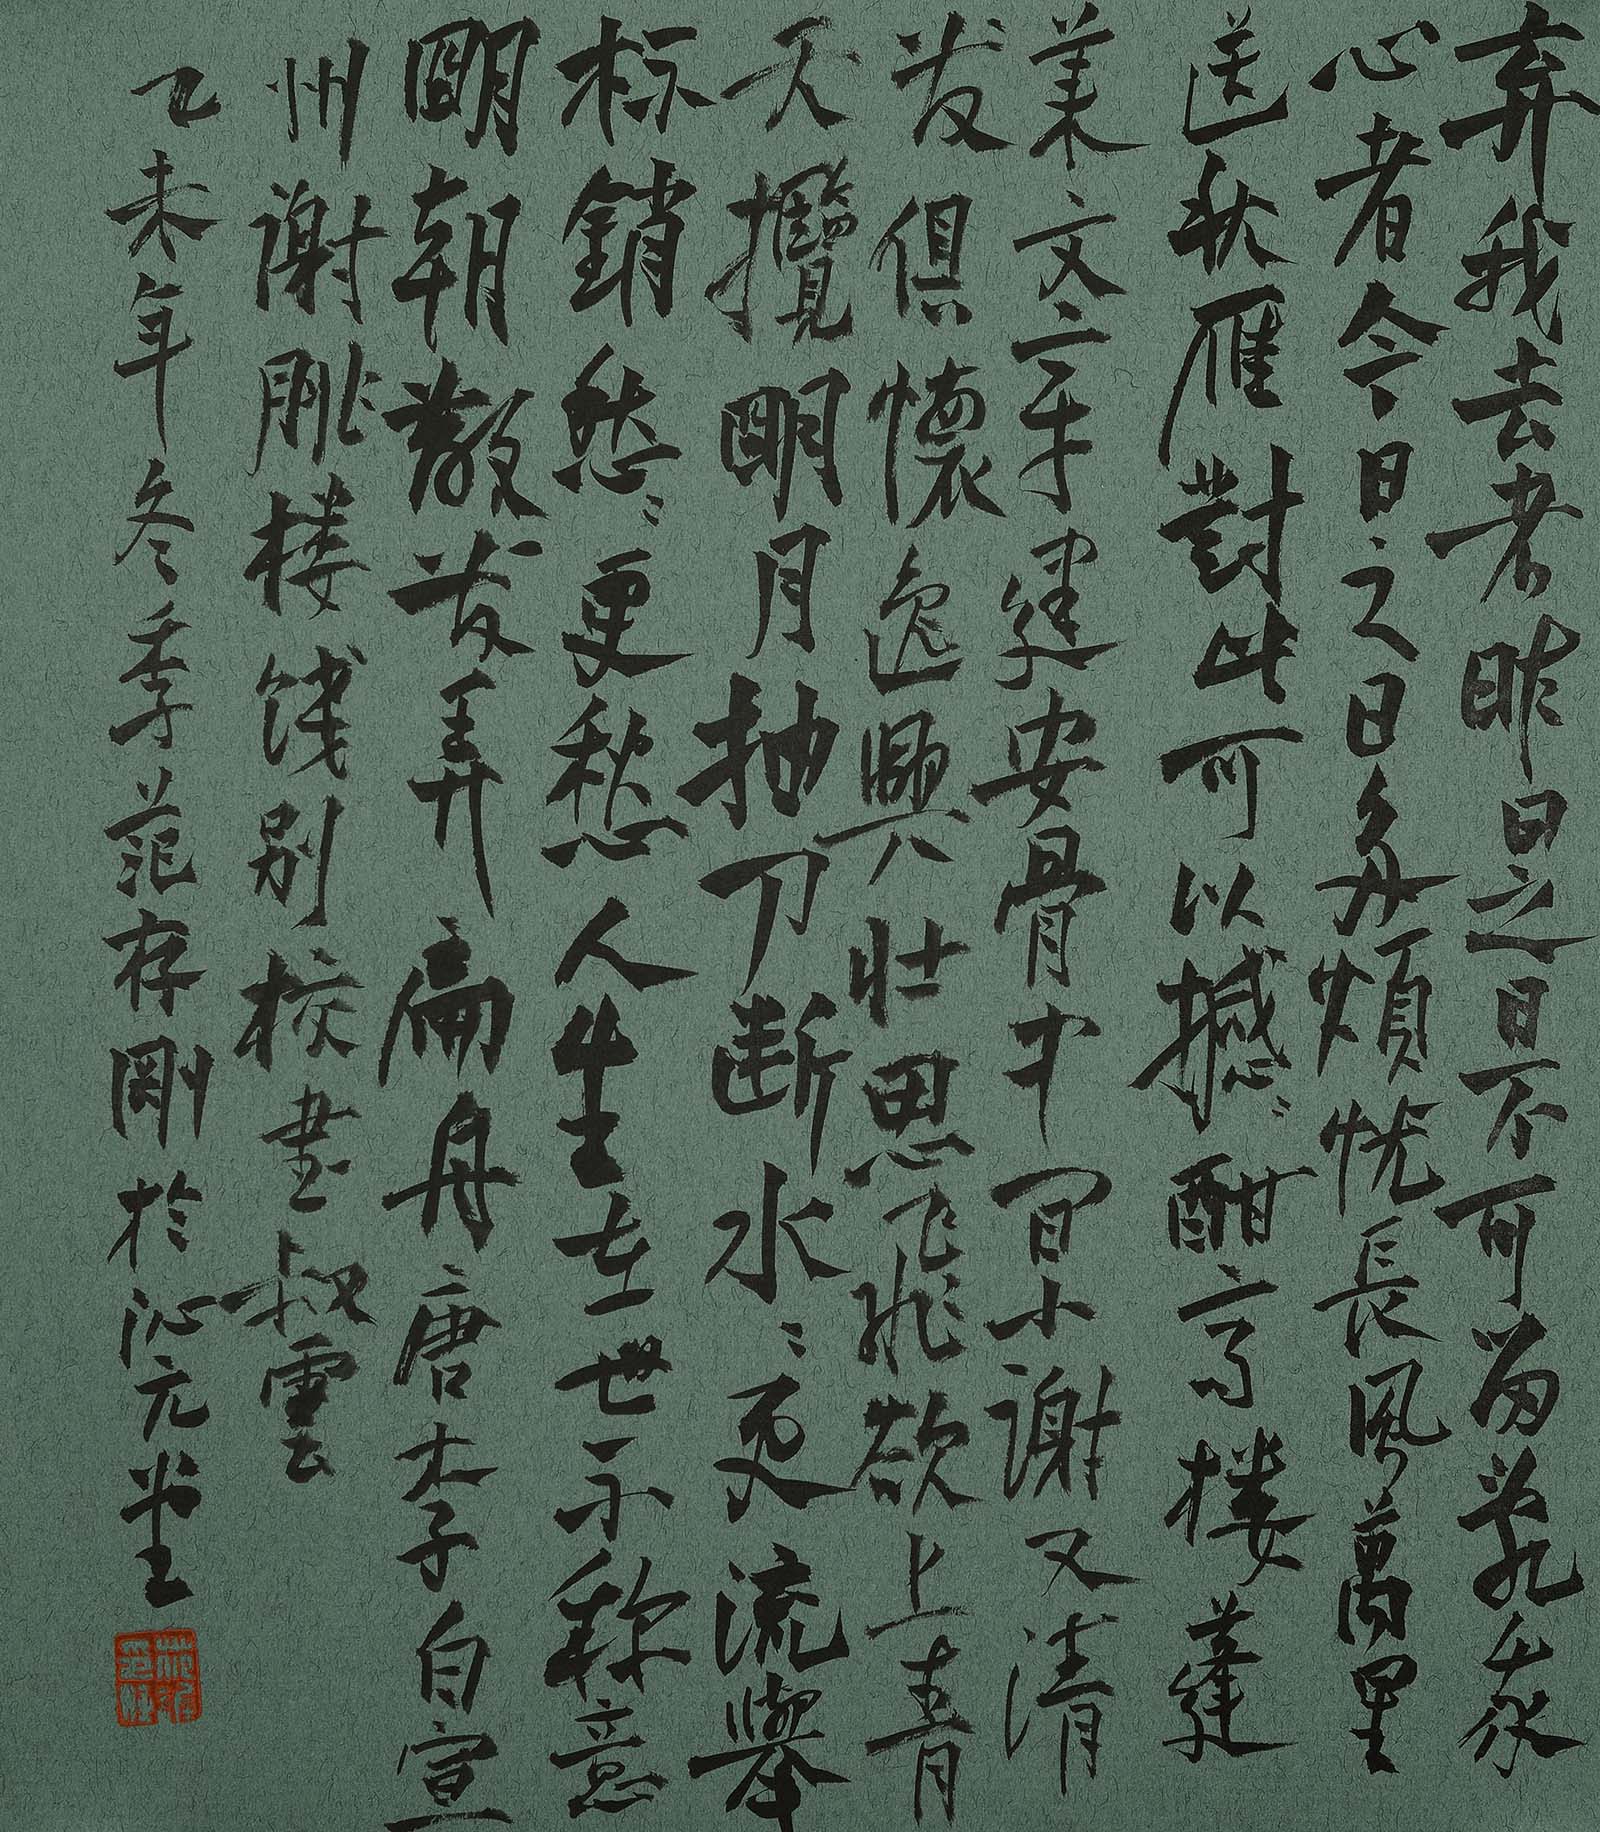 弃我去者昨日之日不可留亂我
心者今日之日多煩忧長風萬里
送秋雁對此可以撼〻酣高楼蓬
莱文章建安骨中间小謝又清
发俱懷逸興壯思飛欲上青
天攬明月抽刀断水〻更流舉
杯銷愁〻更愁人生在世不称意
明朝散发弄扁舟唐李白宣
州谢朓楼饯别校書叔雲
乙未年冬季范存剛於沁元堂